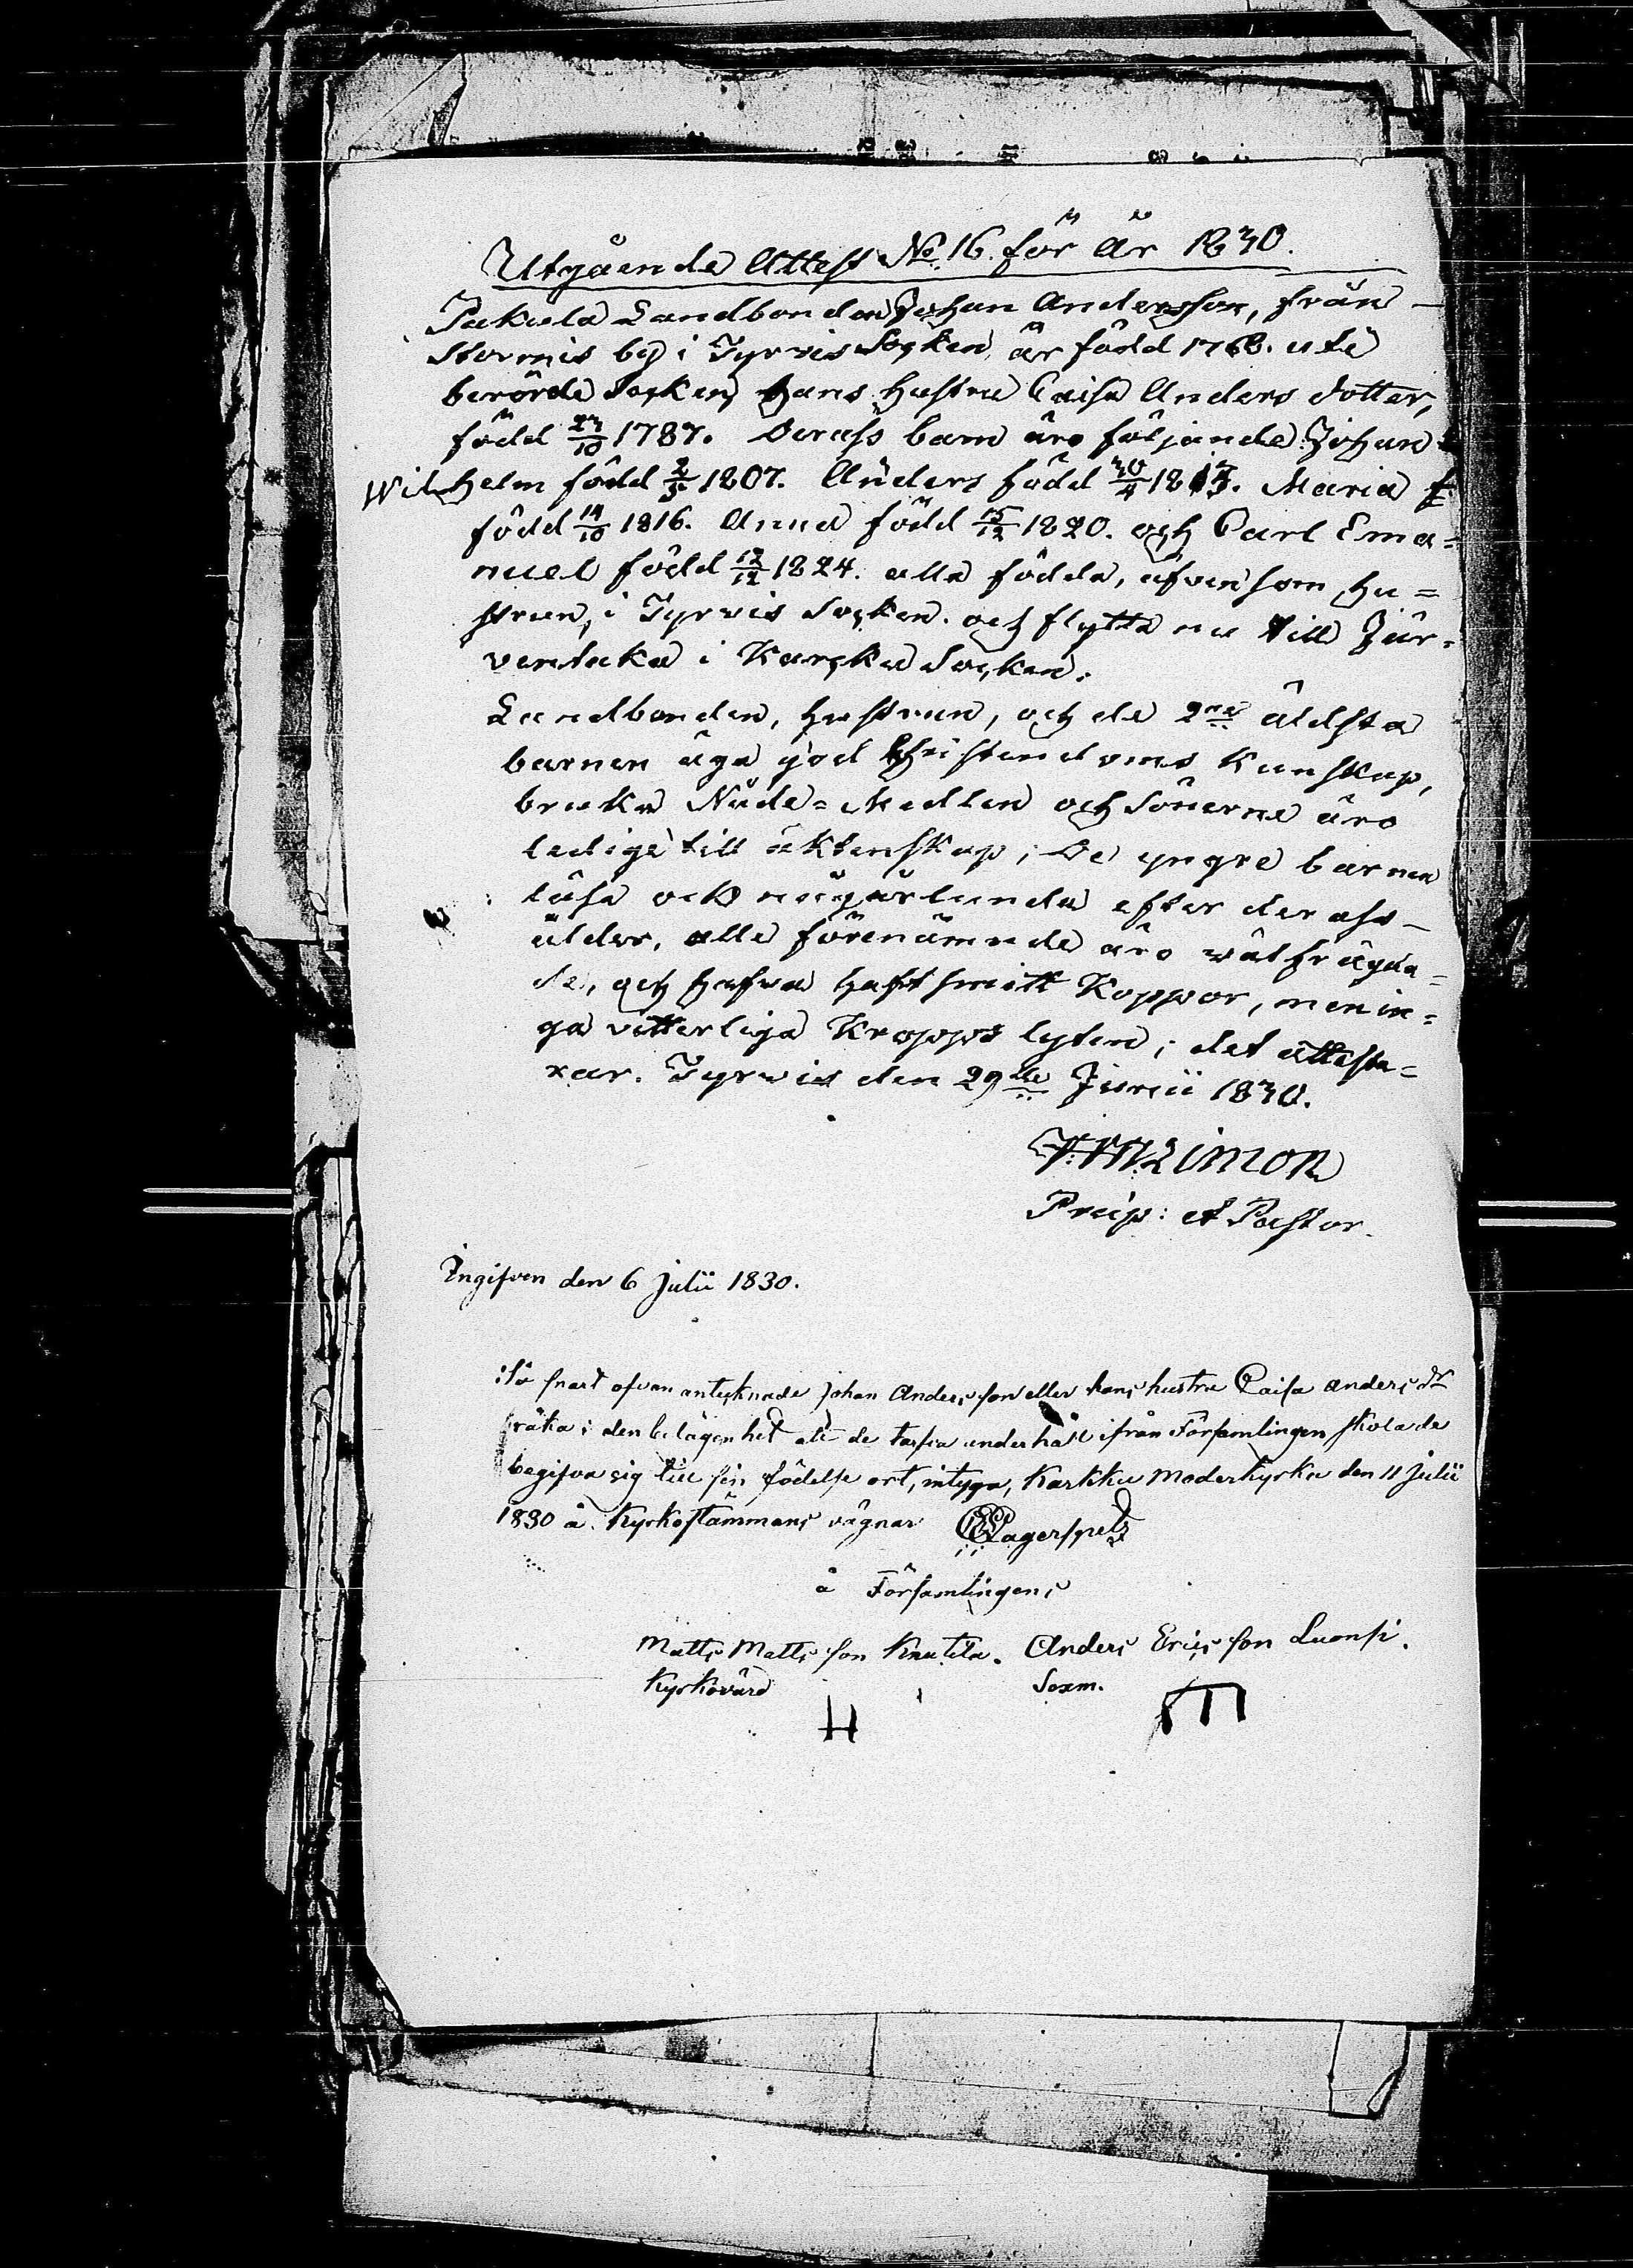 Utgående Attest No 16. för år 1830.
Pakula Landbonden Johan Andersson, från
Stormis by i Tyrvis Socken är född 1768. uti
berörde Socken, hans hustru Caisa Anders dotter,
född 23/10 1787. Derass barn äro följande Johan
Wilhelm född 2/5 1807. Anders född 30/4 1813. Maria
född 14/10 1816. Anna född 15/12 1820. och Carl Ema=
nuel född 12/12 1824. alla födda, äfvensom hu=
strun, i Tyrvis Socken. och flytta nu till Jär=
ventaka i Karcku Socken.
Landbonden, hustrun, och de 2ne äldsta
barnen äga god Christendoms Kunskap,
bruka Nåde=Medlen och Sönerne äro
ledige till äktenskap; De yngre barnen
läsa ock någorlunda efter derass
ålder, alla förenämnde äro wälfrägda=
de, och hafva haft smitt Koppor, men in=
ga vitterliga Kropps lyten; det atteste=
rar. Tyrvis den 29de Junii 1830.
F: M: Limon
Præp: et Pastor.
Ingifven den 6 Julii 1830.
Så snart ofvan antecknade Johan Andersson eller hans hustru Caisa Anders dr
råka i den belägenhet att de tarfva underhåll ifrån Församlingen skola de
begifva sig till sin födelse ort, intyga, Karkku Moderkyrka den 11 Julii
1830 å Kyrkostämmans vägnar Lagerspetz
å Församlingens
Matts Matts son Knutila. Anders Erics son Luonsi.
Kyrkovärd Sexm.